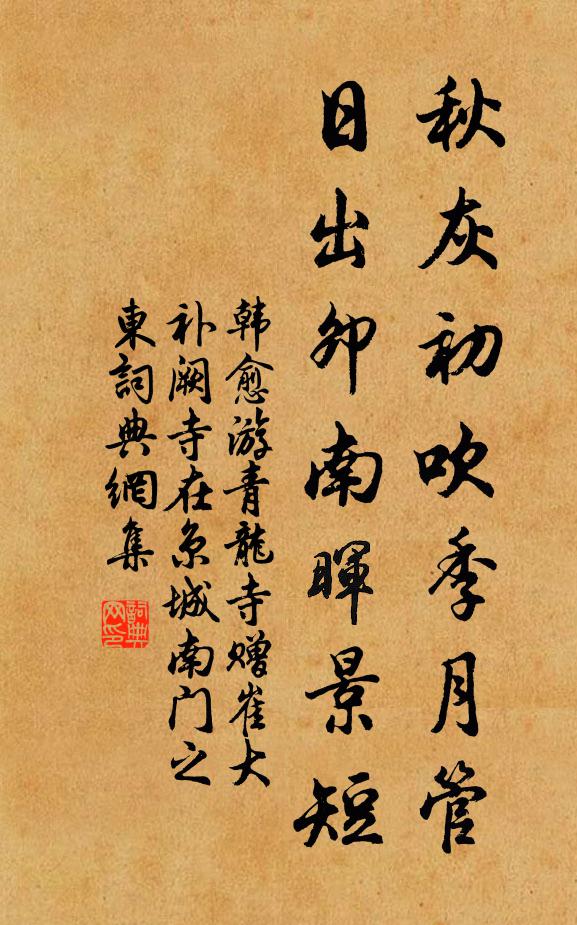 秋灰初吹季月管
日出卯南暉景短
韩愈游青龍寺赠崔大
补阙寺在京城南门之
東詞典網集
詞典网印